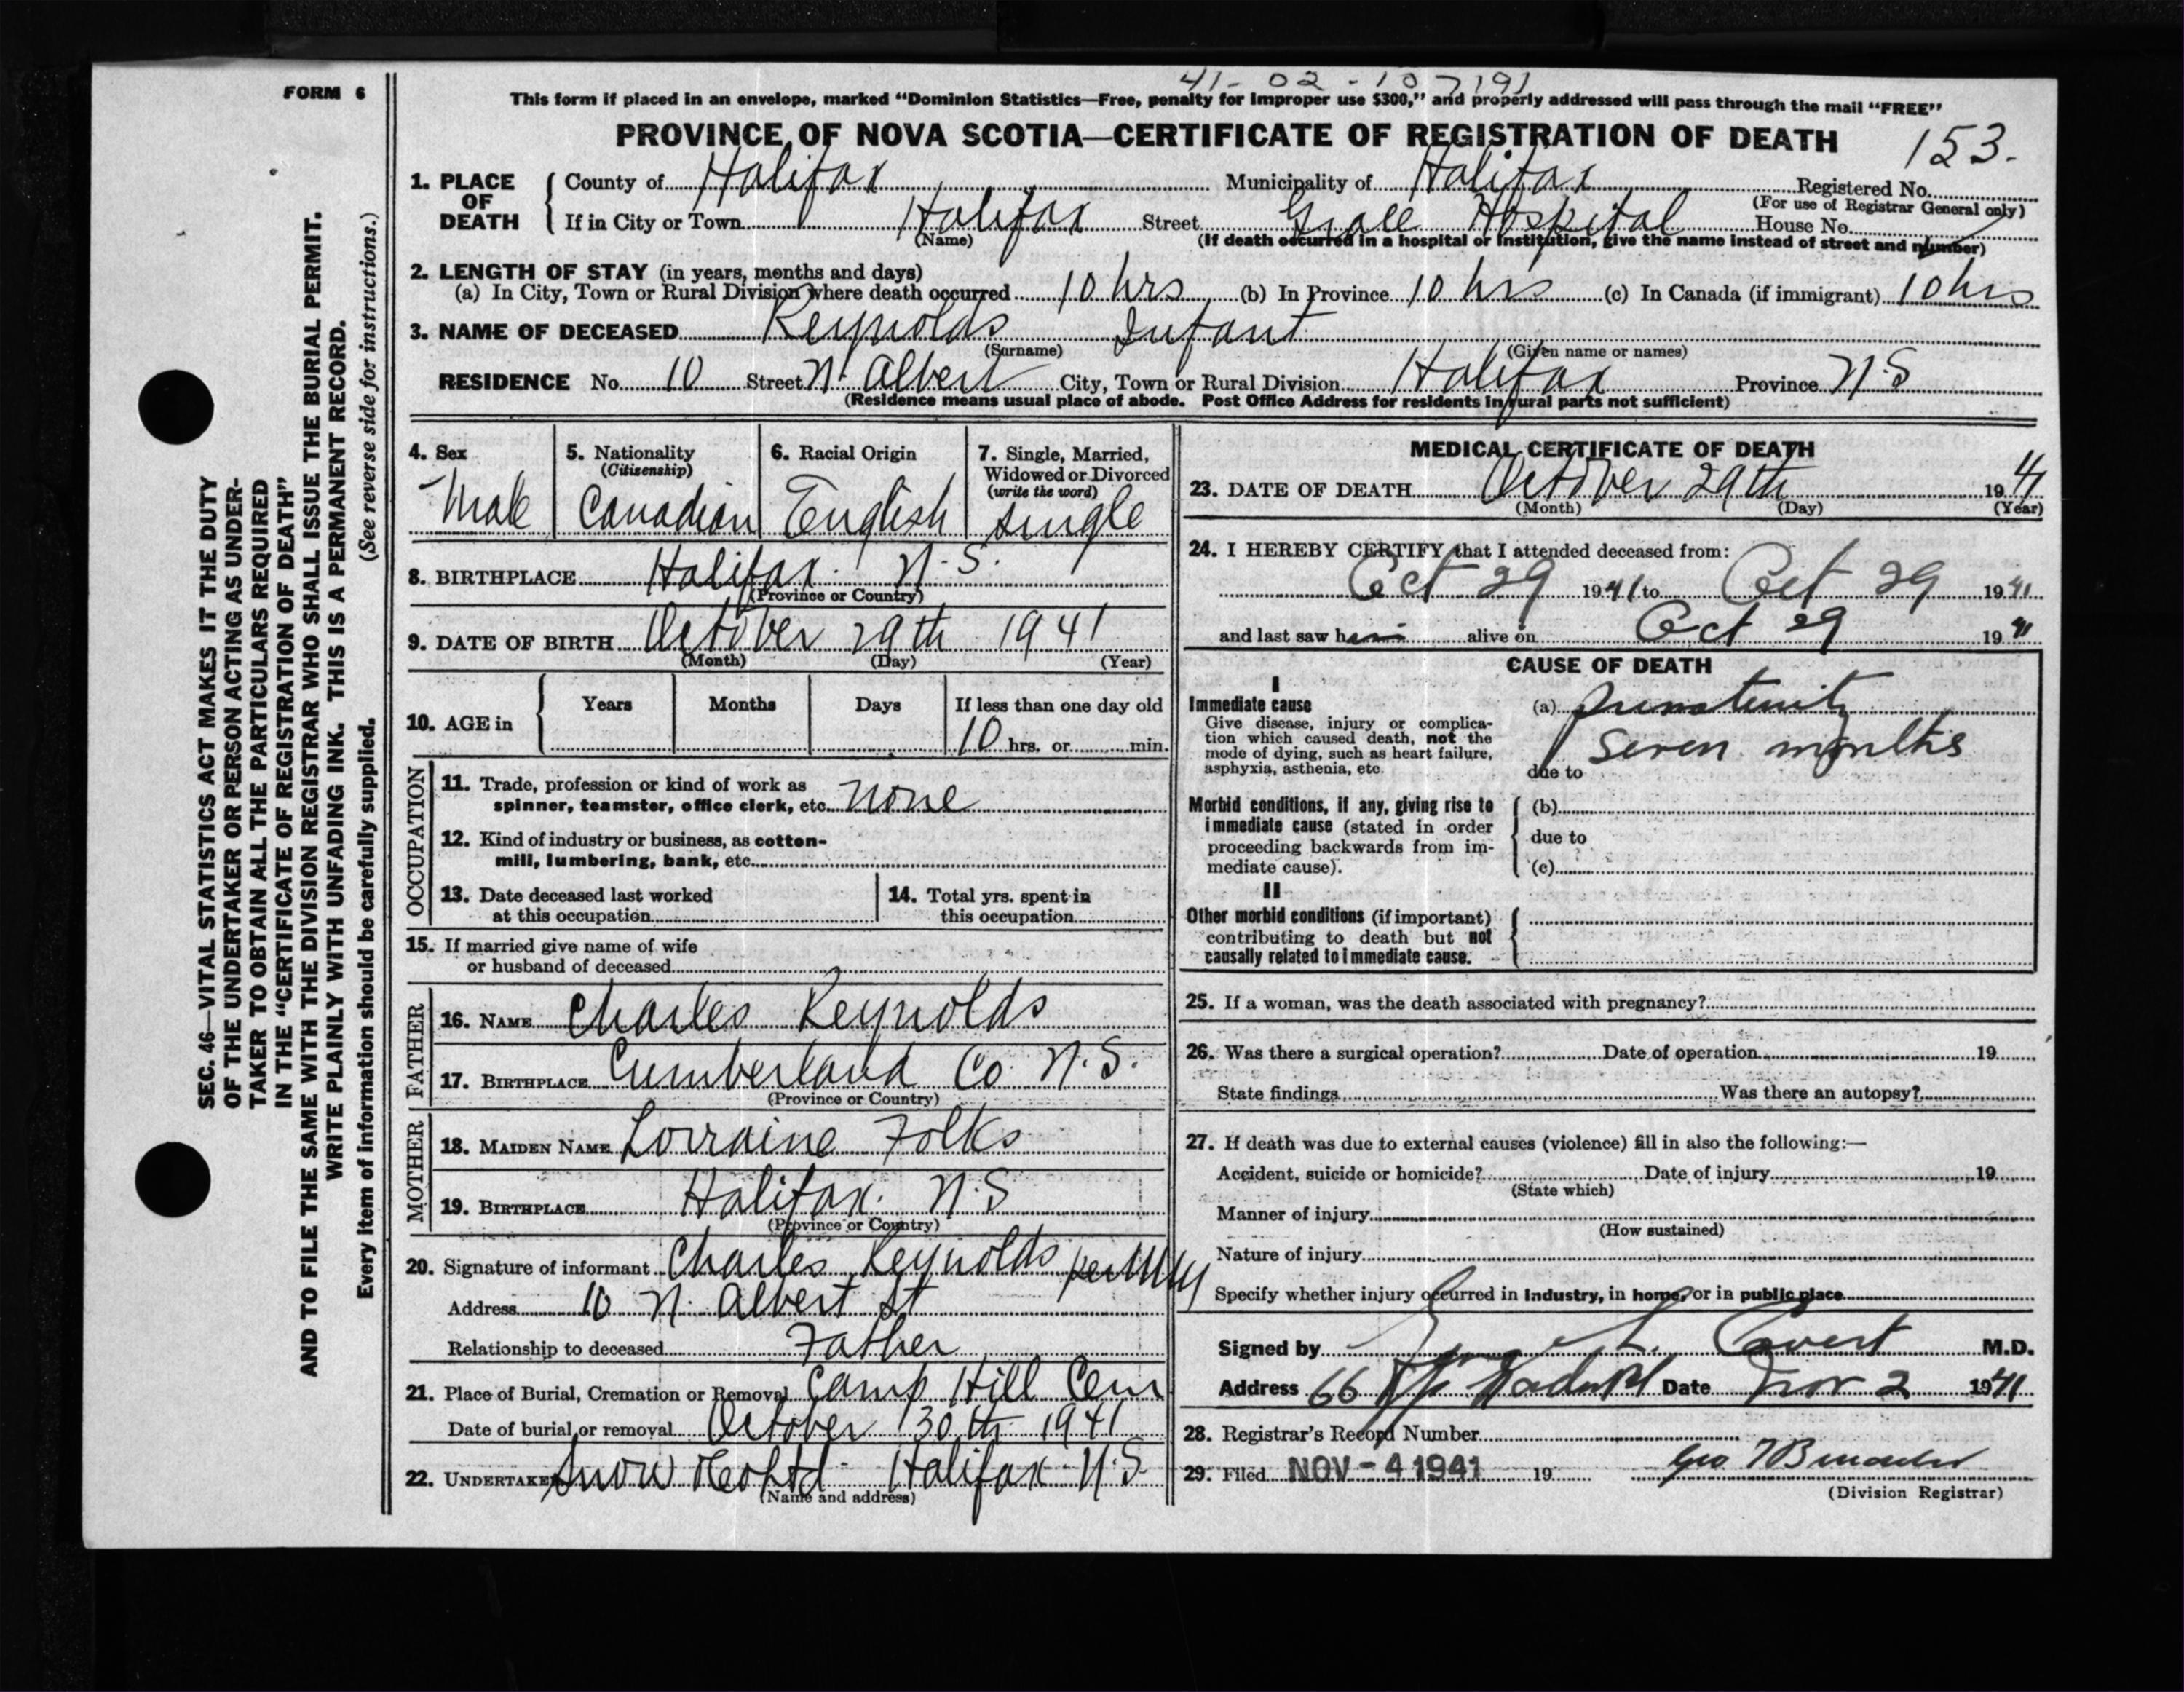 41-02-107191
FORM 6
This form if placed in an envelope, marked "Dominion Statistics—Free, penalty for improper use $300," and properly addressed will pass through the mail "FREE"
PROVINCE OF NOVA SCOTIA—CERTIFICATE OF REGISTRATION OF DEATH
153.
1. PLACE OF DEATH
County of Halifax Municipality of Halifax Registered No.
(For use of Registrar General only)
If in City or Town Halifax Street Grace Hospital House No.
(Name) (If death occurred in a hospital or institution, give the name instead of street and number)
2. LENGTH OF STAY (in years, months and days)
(a) In City, Town or Rural Division where death occurred 10 hrs (b) In Province 10 hrs (c) In Canada (if immigrant) 10 hrs
3. NAME OF DECEASED Reynolds Infant
(Surname) (Given name or names)
RESIDENCE No. 10 Street N. Albert City, Town or Rural Division Halifax Province N.S
(Residence means usual place of abode. Post Office Address for residents in rural parts not sufficient)
4. Sex
Male
5. Nationality
(Citizenship)
Canadian
6. Racial Origin
English
7. Single, Married,
Widowed or Divorced
(write the word)
single
8. BIRTHPLACE Halifax. N.S.
(Province or Country)
9. DATE OF BIRTH October 29th 1941
(Month) (Day) (Year)
10. AGE in
Years Months Days If less than one day old
10 hrs. or min.
OCCUPATION
11. Trade, profession or kind of work as
spinner, teamster, office clerk, etc. none
12. Kind of industry or business, as cotton-
mill, lumbering, bank, etc.
13. Date deceased last worked
at this occupation
14. Total yrs. spent in
this occupation
15. If married give name of wife
or husband of deceased
FATHER
16. NAME Charles Reynolds
17. BIRTHPLACE Cumberland Co. N.S.
(Province or Country)
MOTHER
18. MAIDEN NAME Lorraine Folks
19. BIRTHPLACE Halifax. N.S
(Province or Country)
20. Signature of informant Charles Reynolds per
Address 10 N. Albert St
Relationship to deceased Father
21. Place of Burial, Cremation or Removal Camp Hill Cem
Date of burial or removal October 30th 1941
22. UNDERTAKER Snow & Co Ltd Halifax N.S
(Name and address)
MEDICAL CERTIFICATE OF DEATH
23. DATE OF DEATH October 29th 1941
(Month) (Day) (Year)
24. I HEREBY CERTIFY that I attended deceased from:
Oct 29 1941 to Oct 29 1941
and last saw him alive on Oct 29 1941
CAUSE OF DEATH
I
Immediate cause
Give disease, injury or complica-
tion which caused death, not the
mode of dying, such as heart failure,
asphyxia, asthenia, etc.
(a) prematurity
seven months
due to
Morbid conditions, if any, giving rise to
immediate cause (stated in order
proceeding backwards from im-
mediate cause).
(b)
due to
(c)
II
Other morbid conditions (if important)
contributing to death but not
causally related to immediate cause.
25. If a woman, was the death associated with pregnancy?
26. Was there a surgical operation? Date of operation 19
State findings Was there an autopsy?
27. If death was due to external causes (violence) fill in also the following:—
Accident, suicide or homicide? Date of injury 19
(State which)
Manner of injury
(How sustained)
Nature of injury
Specify whether injury occurred in industry, in home, or in public place
Signed by L. Covert M.D.
Address 66 Date Nov 2 1941
28. Registrar's Record Number
29. Filed NOV - 4 1941 19
(Division Registrar)
SEC. 46—VITAL STATISTICS ACT MAKES IT THE DUTY
OF THE UNDERTAKER OR PERSON ACTING AS UNDER-
TAKER TO OBTAIN ALL THE PARTICULARS REQUIRED
IN THE "CERTIFICATE OF REGISTRATION OF DEATH"
AND TO FILE THE SAME WITH THE DIVISION REGISTRAR WHO SHALL ISSUE THE BURIAL PERMIT.
WRITE PLAINLY WITH UNFADING INK. THIS IS A PERMANENT RECORD.
Every item of information should be carefully supplied. (See reverse side for instructions.)